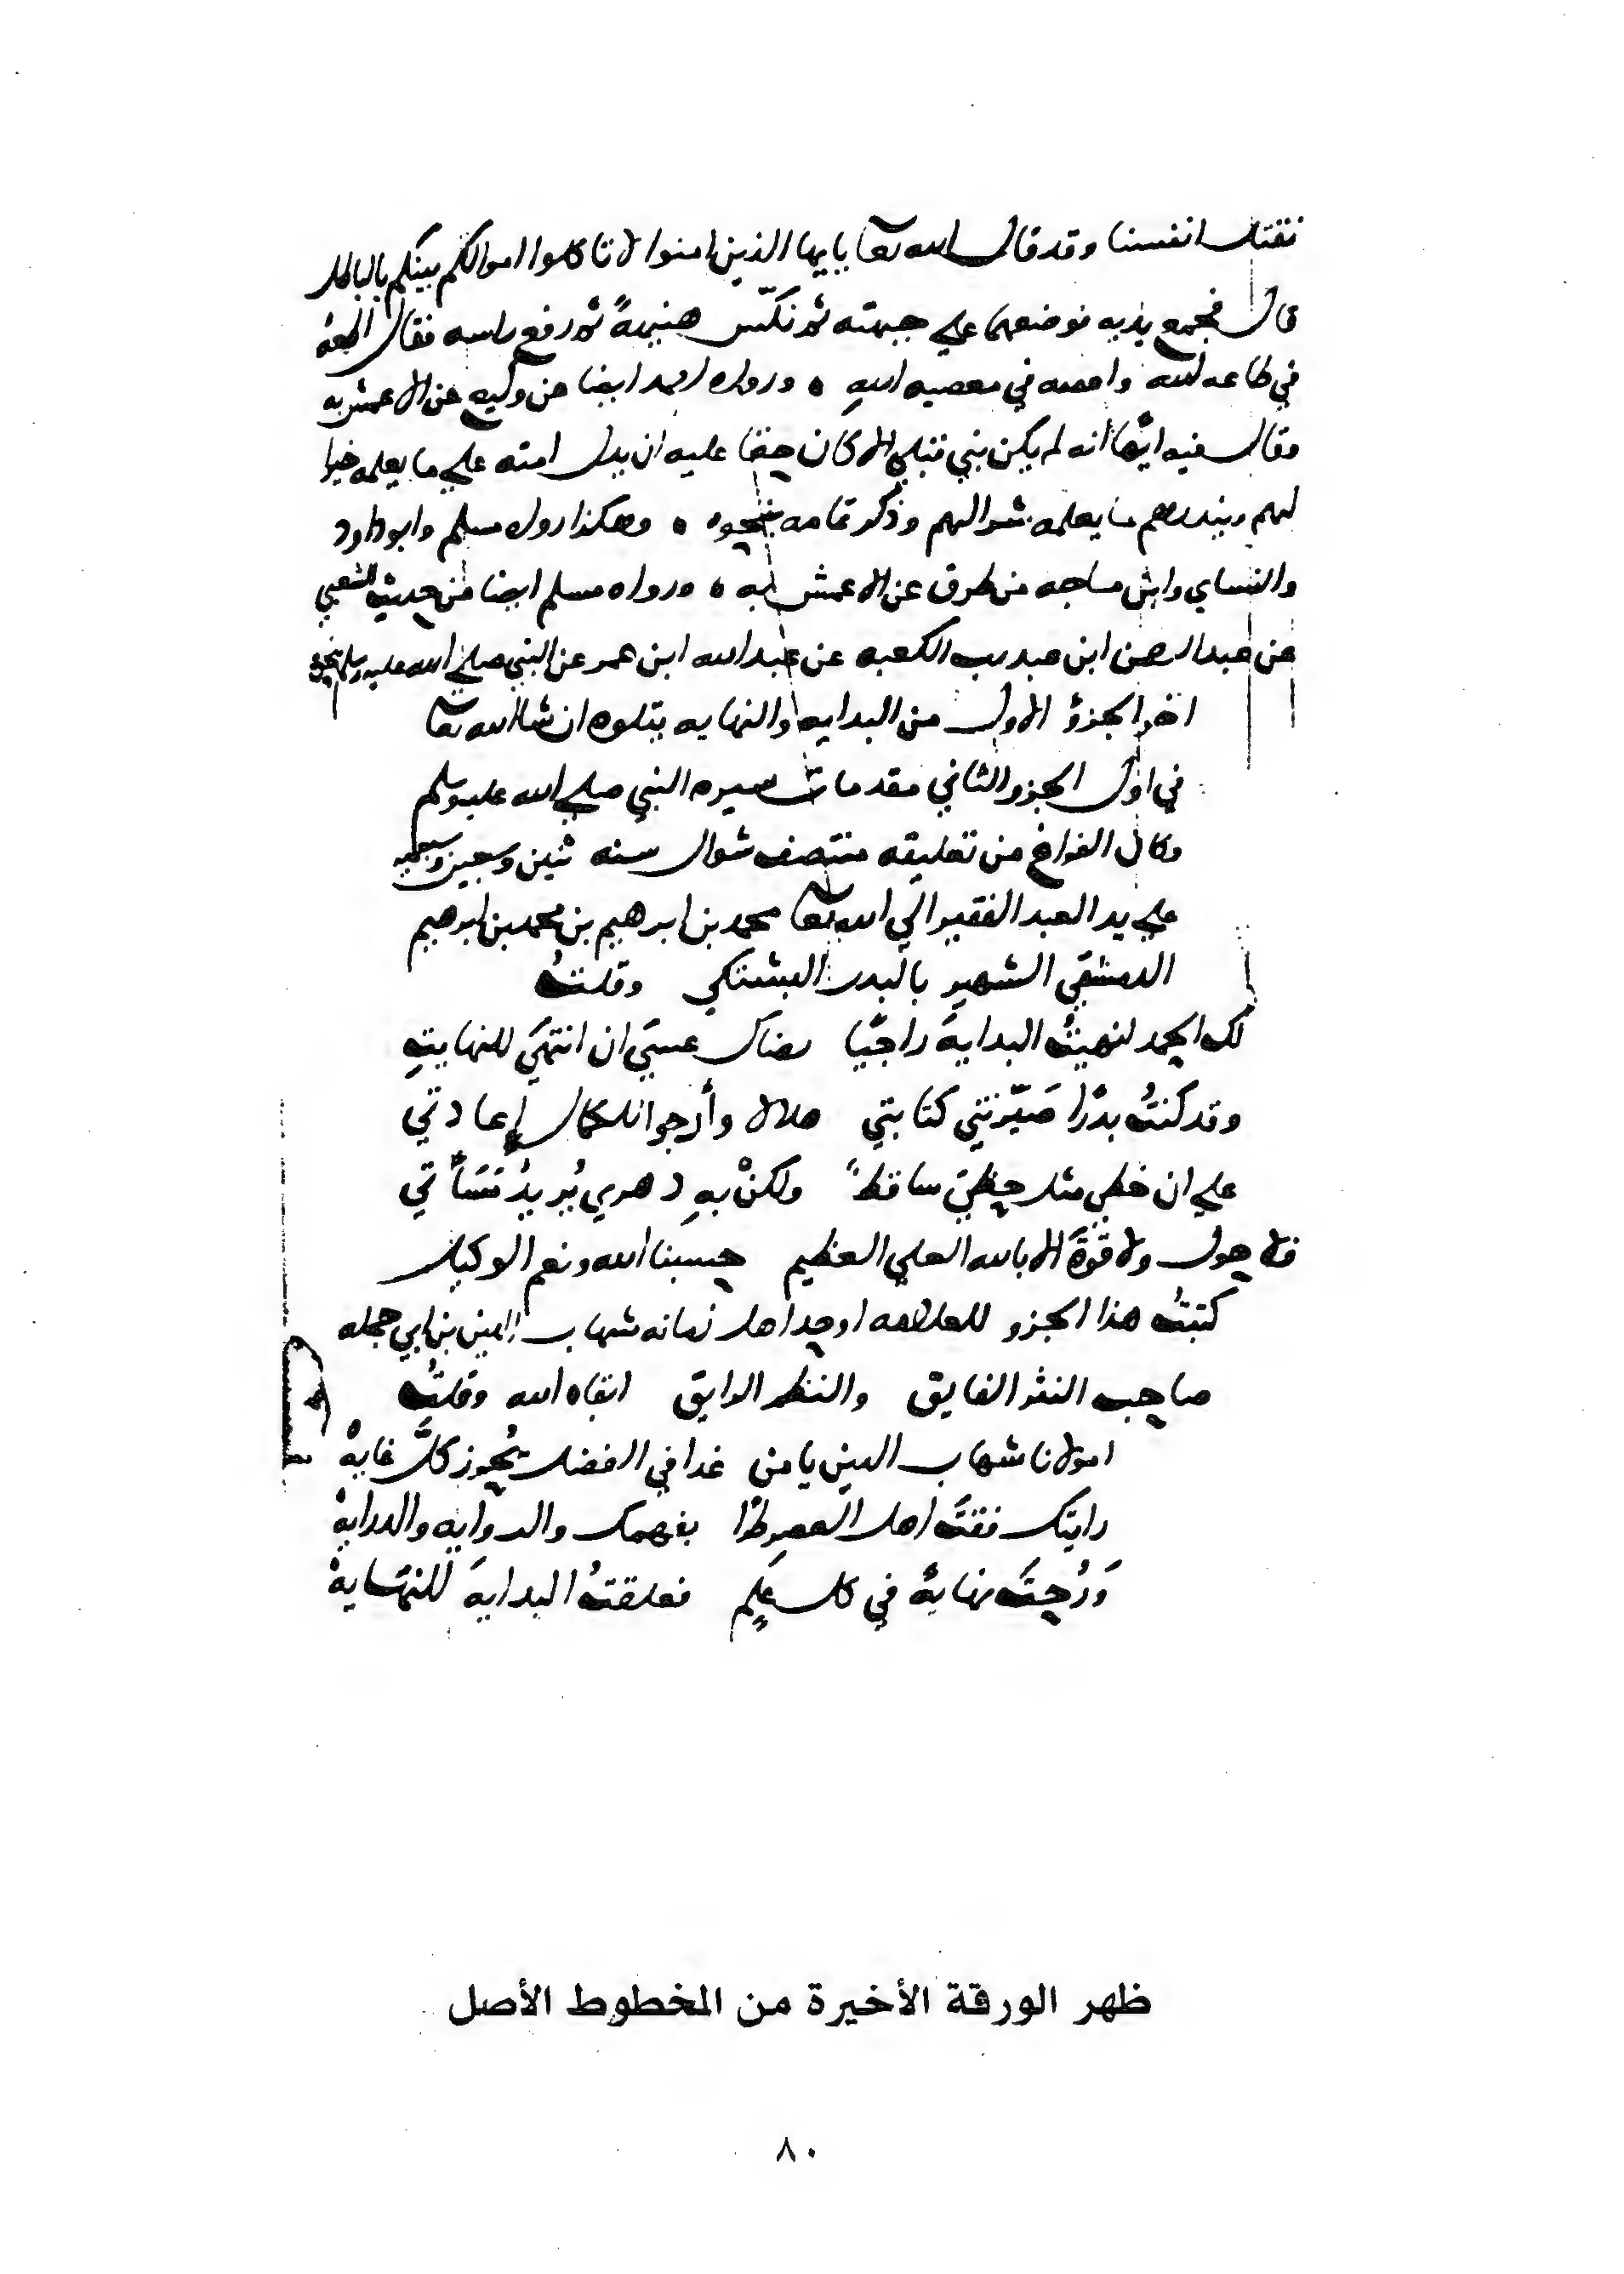 نقتل انفسنا وقد قال الله تعا يايها الذين امنوا لا تاكلوا اموالكم بينكم بالباطل
قال فجمع يديه فوضعهما علي جبهته ثم نكّس هنيهةً ثم رفع راسه فقال اطعه
في طاعه الله واعصه في معصيه اللهِ ٥ ورواه احمد ايضا عن وكيع عن الاعمش به
وقال فيه ايّها انه لم يكن نبي قبلي الا كان حقا عليه ان يدل امته علي ما يعلمه خيرا
لهم وينذرهم ما يعلمه شرا لهم وذكر تمامه بنحوه ٥ وهكذا رواه مسلم وابو داود
والنساي وابن ماجه من طرق عن الاعمش به ٥ ورواه مسلم ايضا من حديث الشعبي
عن عبد الرحمن ابن عبد رب الكعبه عن عبد الله ابن عمر عن النبي صلي الله عليه وسلم بنحوه
اخر الجزؤ الاول من البدايه والنهايه يتلوه ان شا الله تعا
في اول الجزو الثاني مقدمات سيره النبي صلي الله عليه وسلم
وكان الفراغ من تعليقه منتصف شوال سنه ثنين وسبعين وسبعميه
علي يد العبد الفقير الي الله تعا محمد بن ابرهيم بن محمد بن ابرهيم
الدمشقي الشهير بالبدر البشتكي وقلتُ
لك الحمد انهيتُ البدايةَ راجيًا رضاك عسَي ان انتهَي للنهايةِ
وقد كنتُ بدْرًا صَيّرتني كتابتي هلالا وأرجو انلكمال إعادتي
علي ان خطي مثل حظيَ ساقطٌ ولكنْ بهِ دهري يُريدُ مَسَاْتي
فلا حول ولا قوّةَ الا بالله العلي العظيم حسبنا الله ونعم الوكيل
كتبتُ هذا الجزو للعلامه اوحد اهل زمانه شهاب الدين بن ابي حجله
صاحب النثر الفايق والنظم الرايق ابقاه الله وقلتُ
امولانا شهاب الدين يا من غدا في الفضل يحُوز كلَّ غايهْ
رايتك فقتَ اهل العصر طرًّا بفهمك والروايه والدرايهْ
وَرُحتَ نهايةً في كل عِلم فعلقتُ البدايةَ للنهَايهْ
ظهر الورقة الأخيرة من المخطوط الأصل
٨٠